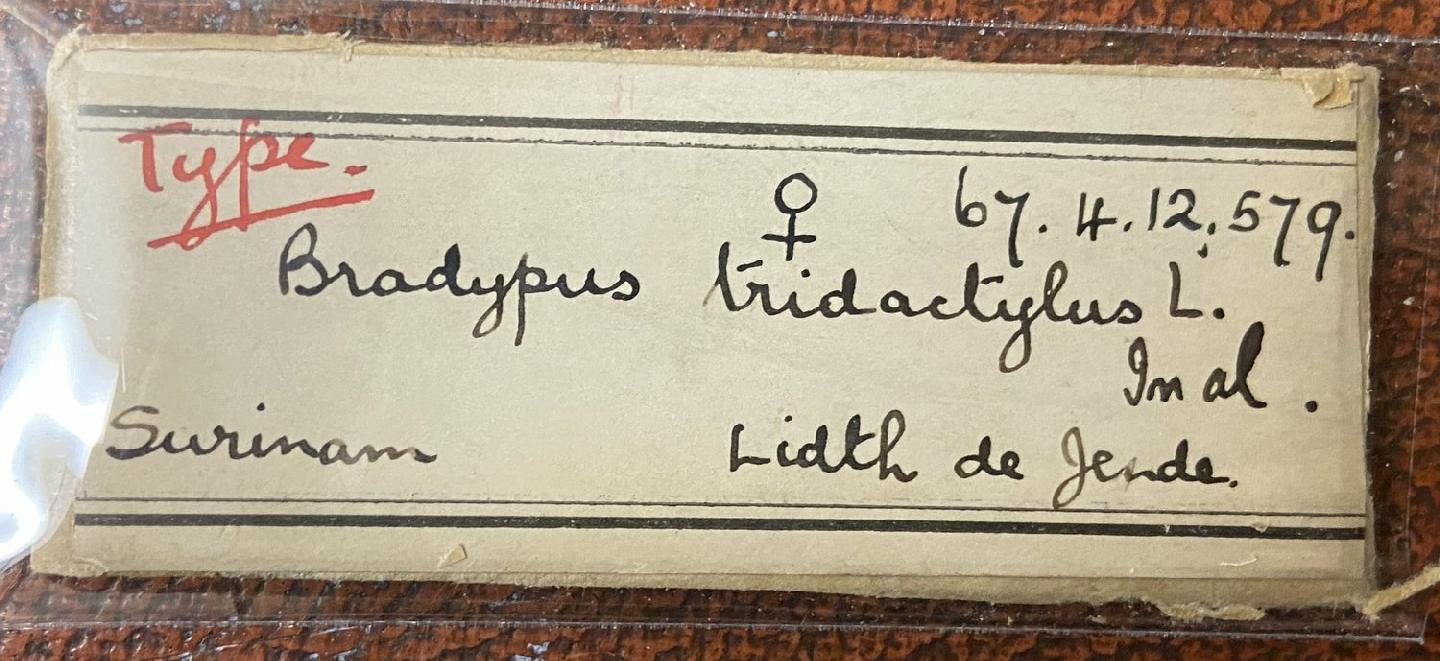 Type.
♀ 67.4.12.579.
Bradypus tridactylus L.
In al.
Surinam Lidth de Jende.